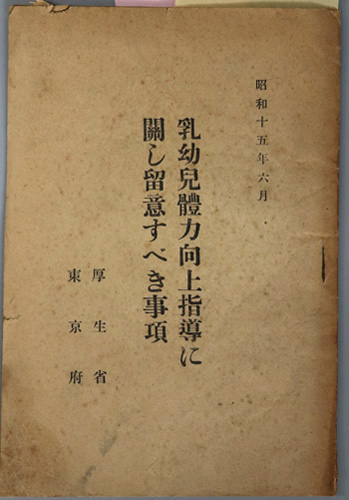 昭和十五年六月
乳幼兒體力向上指導に
關し留意すべき事項
厚生省
東京府